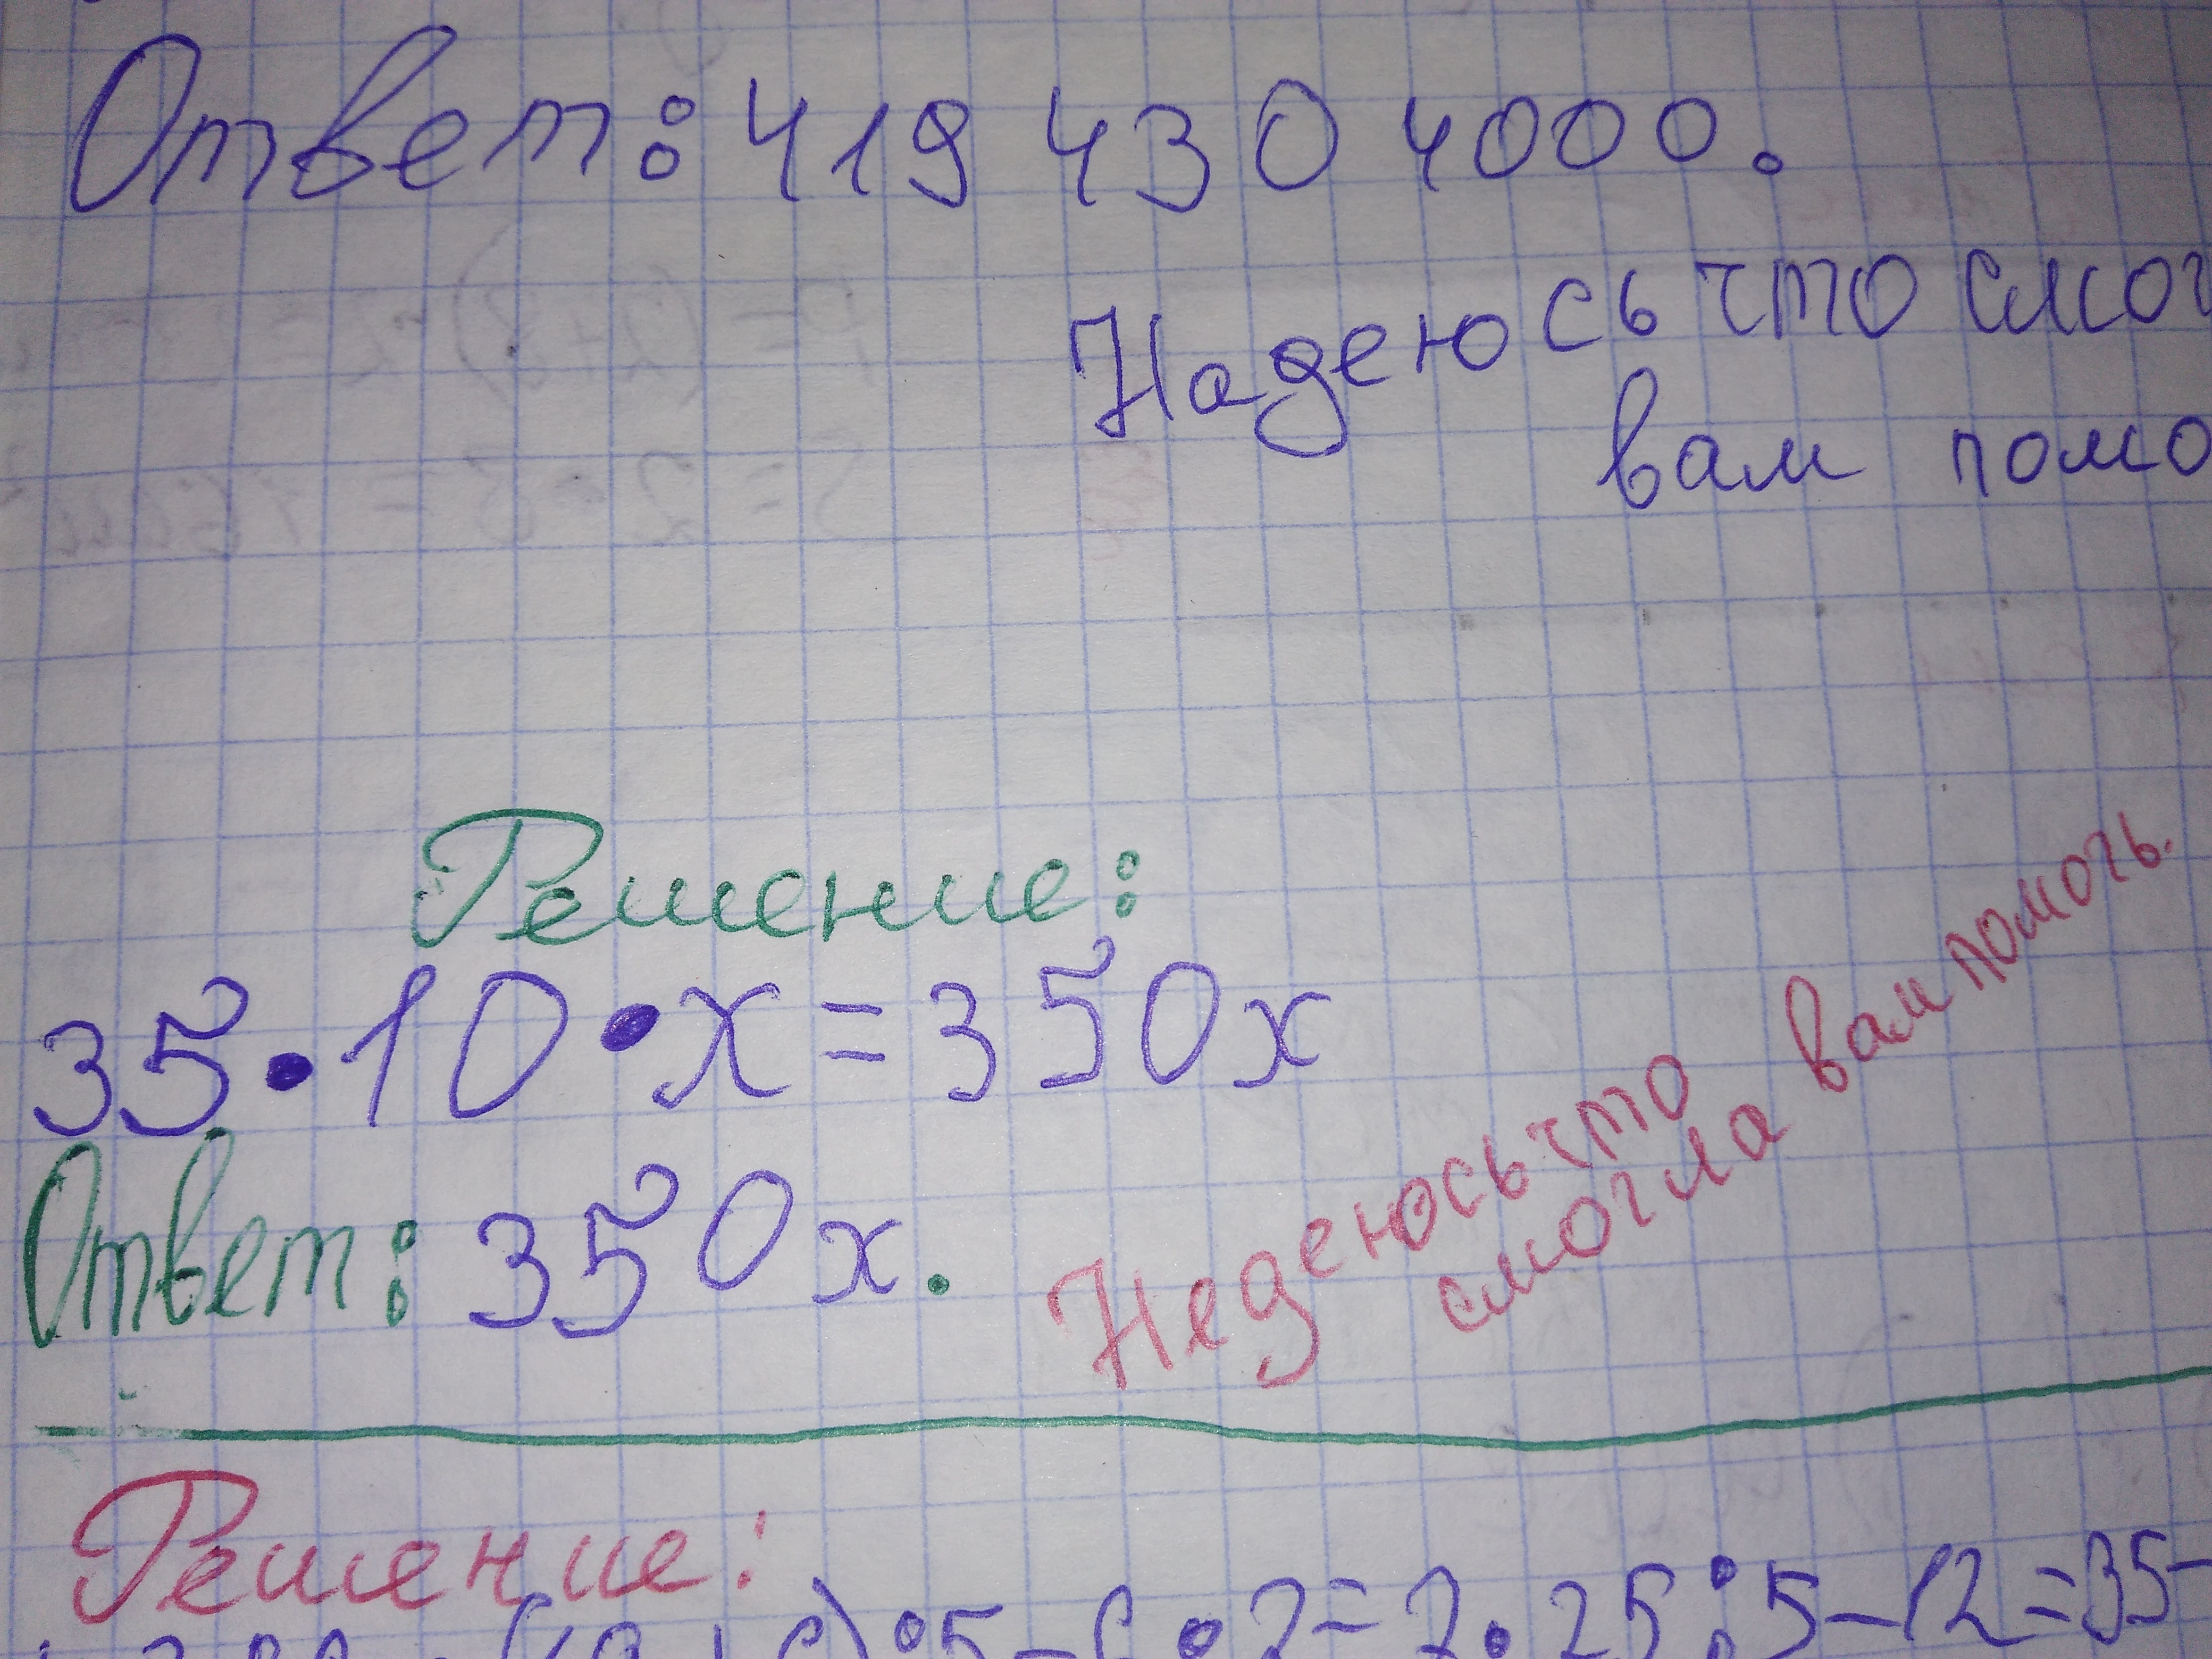 Ответ: 419 430 4000.
Надеюсь что смог
вам помо
Решение:
35•10•x=350x
Ответ: 350x.
Недеюсь что
смогла вам помочь.
Решение:
:5-6•2= 25:5-12=35-